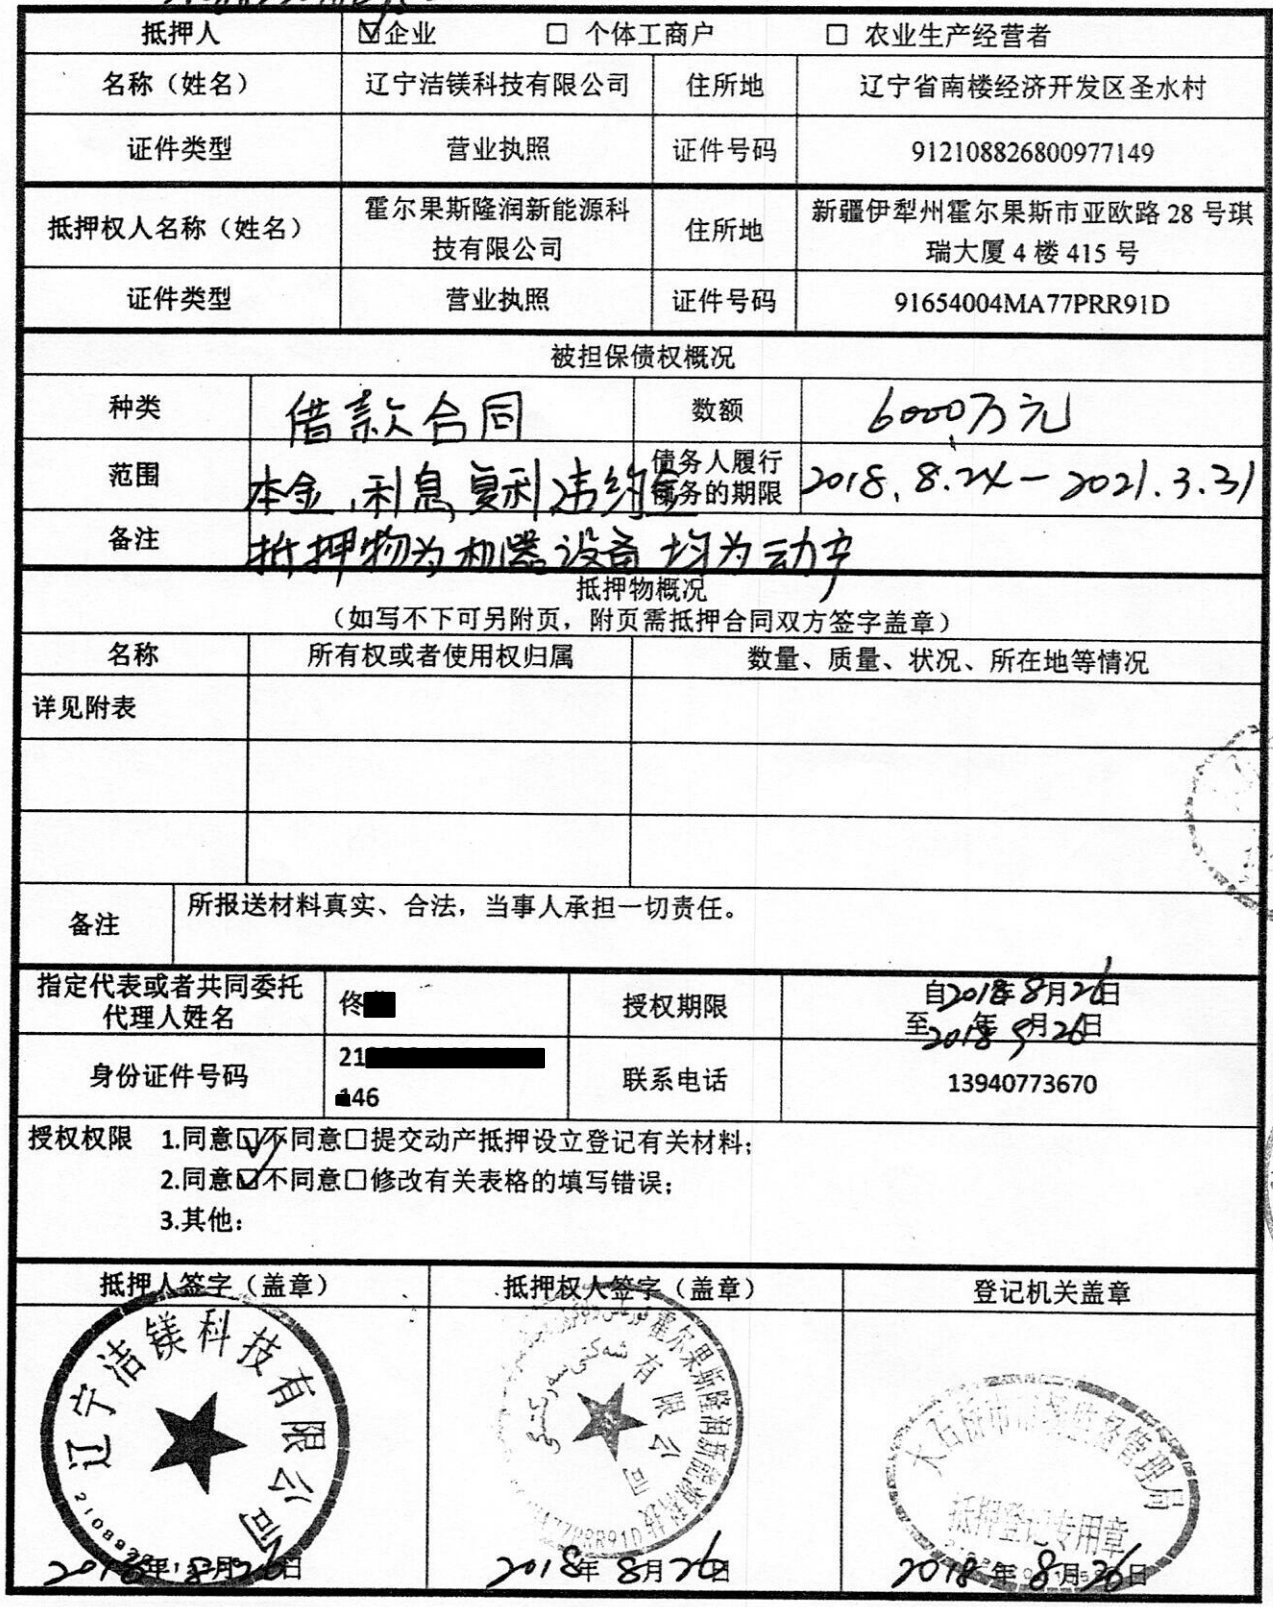 抵押人 ☑企业 □ 个体工商户 □ 农业生产经营者
名称（姓名） 辽宁洁镁科技有限公司 住所地 辽宁省南楼经济开发区圣水村
证件类型 营业执照 证件号码 912108826800977149
抵押权人名称（姓名） 霍尔果斯隆润新能源科技有限公司 住所地 新疆伊犁州霍尔果斯市亚欧路 28 号琪瑞大厦 4 楼 415 号
证件类型 营业执照 证件号码 91654004MA77PRR91D
被担保债权概况
种类 借款合同 数额 6000万元
范围 本金,利息,复利违约金 债务人履行债务的期限 2018.8.24-2021.3.31
备注 抵押物为机器设备 均为动产
抵押物概况
（如写不下可另附页，附页需抵押合同双方签字盖章）
名称 所有权或者使用权归属 数量、质量、状况、所在地等情况
详见附表
备注 所报送材料真实、合法，当事人承担一切责任。
指定代表或者共同委托代理人姓名 佟 授权期限 自2018年8月26日
至2018年9月26日
身份证件号码 21 146 联系电话 13940773670
授权权限 1.同意☑不同意□提交动产抵押设立登记有关材料；
2.同意☑不同意□修改有关表格的填写错误；
3.其他：
抵押人签字（盖章） 抵押权人签字（盖章） 登记机关盖章
辽宁洁镁科技有限公司
霍尔果斯隆润新能源科技有限公司
大石桥市市场监督管理局
抵押登记专用章
2018年8月26日 2018年8月26日 2018年8月26日